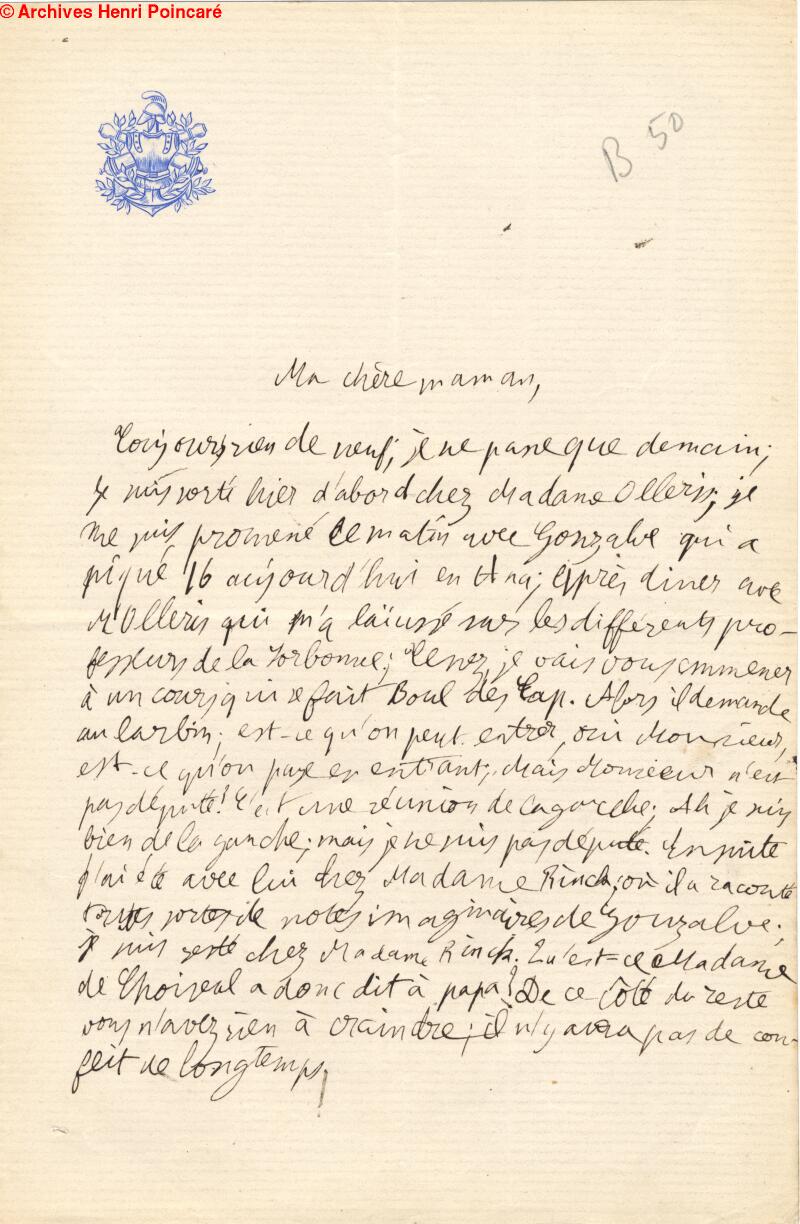 © Archives Henri Poincaré
B 50
Ma chère maman,
Toujours rien de neuf; je ne passe que demain;
je suis sorti hier d'abord chez Madame Olleris; je
me suis promené ce matin avec Gonzalve qui a
piqué 16 aujourd'hui en Ana; après diner avec
M Olleris qui m'a laïussé sur les différents pro-
fesseurs de la Sorbonne; Tenez, je vais vous emmener
à un cours qui se fait Boul des Cap. Alors il demande
au larbin; est-ce qu'on peut entrer, oui Monsieur,
est-ce qu'on paye en entrant; Mais Monsieur n'est
pas député! C'est une réunion de la gauche; Ah je suis
bien de la gauche; mais je ne suis pas député. Ensuite
j'ai été avec lui chez Madame Rinck; où il a raconté
toutes sortes de notes imaginaires de Gonzalve;
je suis resté chez Madame Rinck. Qu'est-ce Madame
de Choiseul a donc dit à papa? De ce côté du reste
vous n'avez rien à craindre; il n'y aura pas de con-
flit de longtemps.